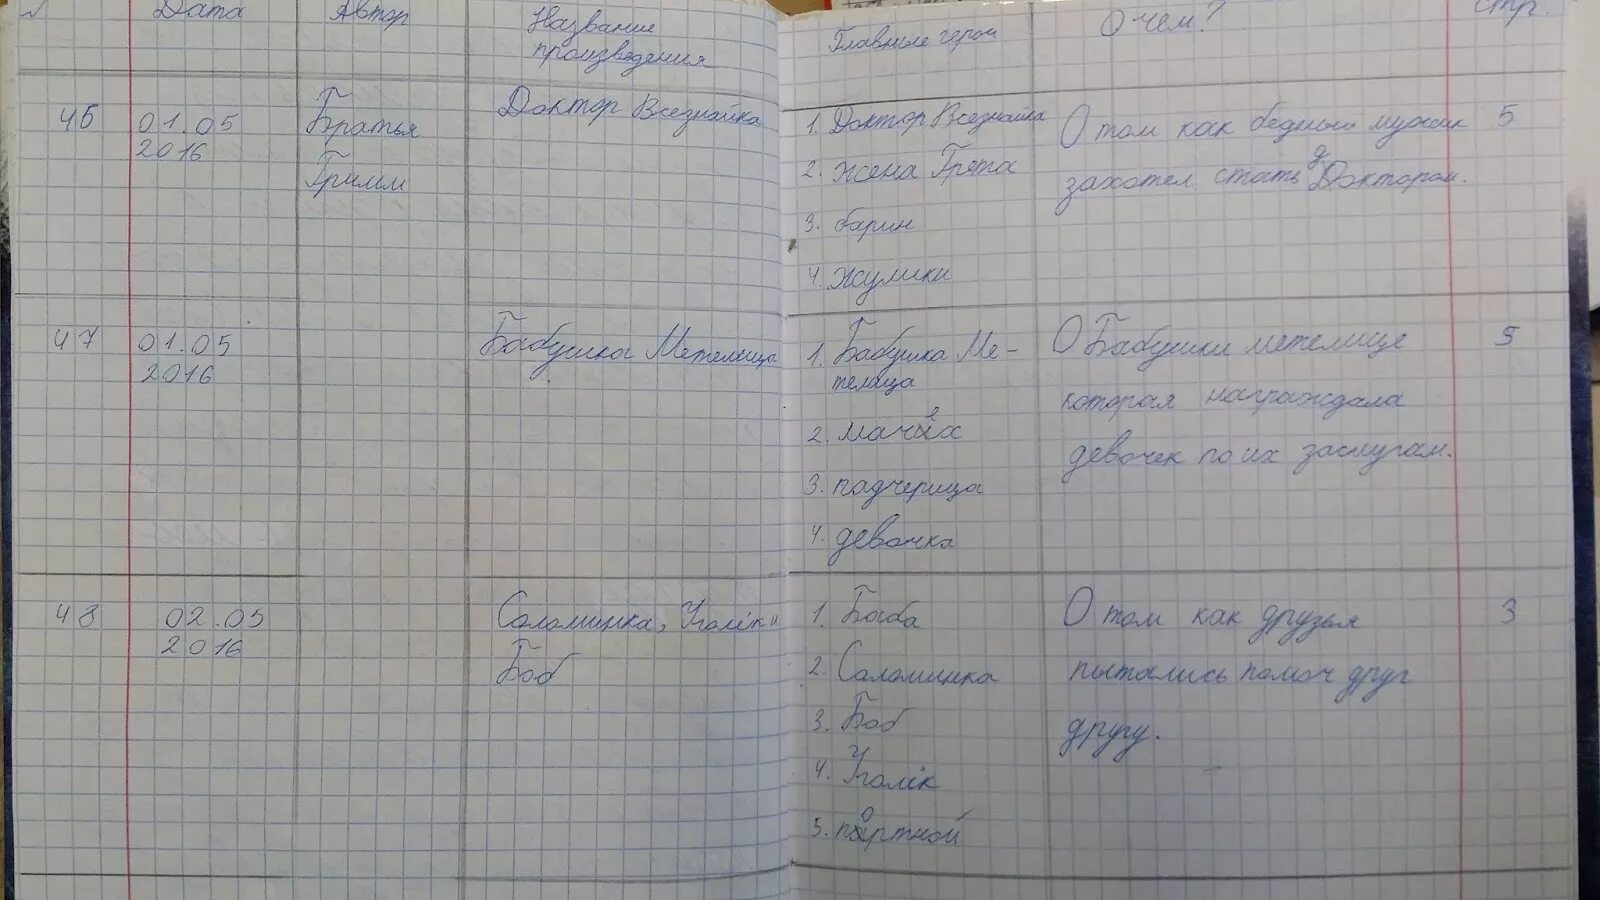 Дата Автор Название произведения Главные герои О чем? стр.
46 01.05 2016 Братья Гримм Доктор Всезнайка
1. Доктор Всезнайка
2. жена Грета
3. барин
4. жулики
О том как бедный мужик 5
захотел стать Доктором.
47 01.05 2016 Бабушка Метелица
1. Бабушка Ме-
телица
2. мачех
3. падчерица
4. девочка
О Бабушки метелице 5
которая награждала
девочек по их заслугам.
48 02.05 2016 Соломинка, Уголёк и
Боб
1. Бабба
2. Соломинка
3. Боб
4. Уголёк
5. портной
О том как друзья 3
пытались помоч друг
другу.